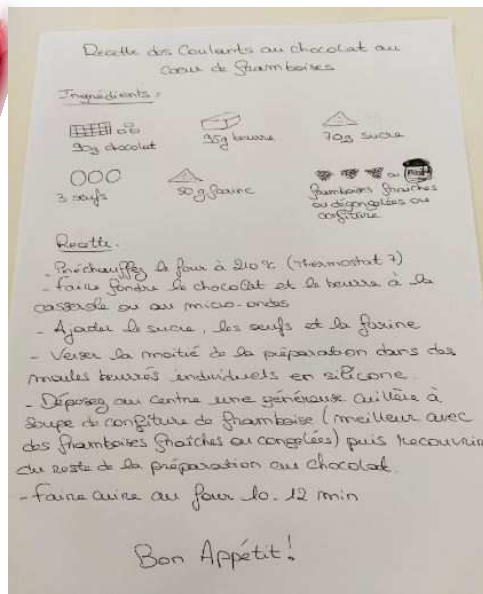 Recette des Coulants au chocolat au
coeur de framboises
Ingrédients :
90g chocolat
95g beurre
70g sucre
3 oeufs
50g farine
framboises fraiches
ou dégongelées ou
confiture
Recette.
- Préchauffez le four à 210°c (thermostat 7)
- Faire fondre le chocolat et le beurre à la
casserole ou au micro-ondes
- Ajouter le sucre, les oeufs et la farine
- Verser la moitié de la préparation dans des
moules beurrés individuels en silicone.
- Déposez au centre une généreuse cuillère à
soupe de confiture de framboise (meilleur avec
des framboises fraîches ou congelées) puis recouvrir
du reste de la préparation au chocolat.
- Faire cuire au four 10-12 min
Bon Appétit !